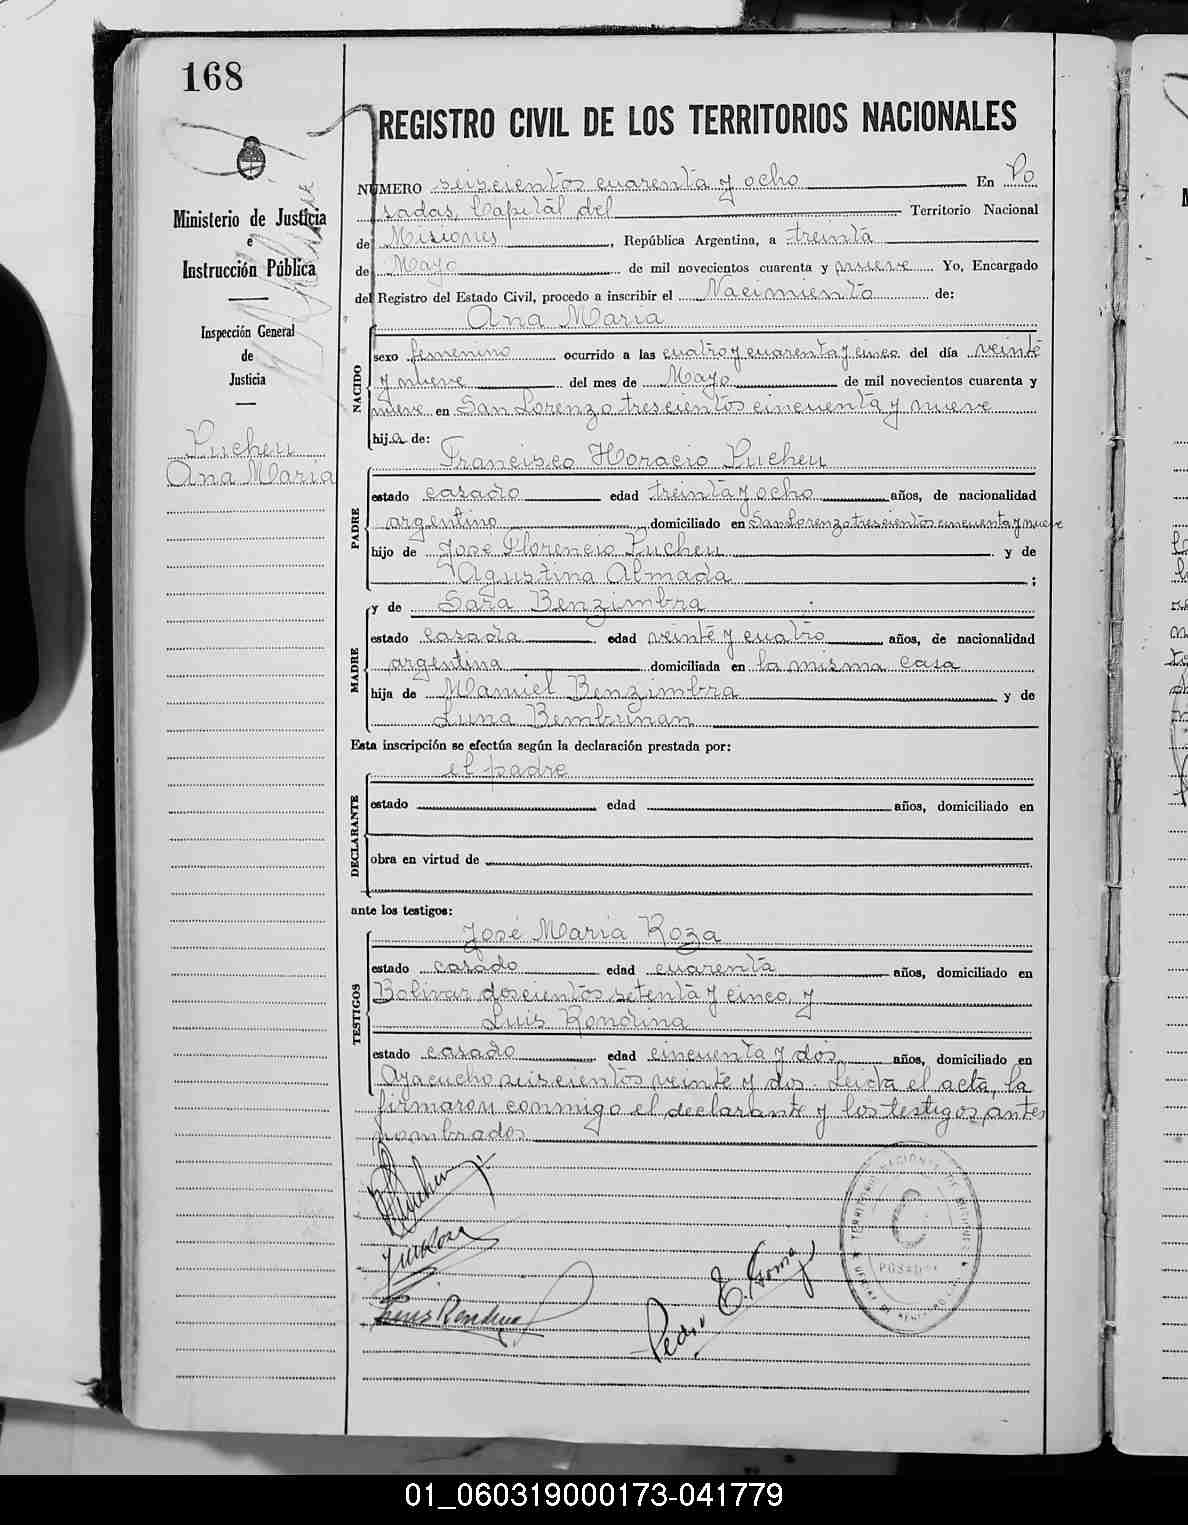 168
REGISTRO CIVIL DE LOS TERRITORIOS NACIONALES
Ministerio de Justicia
e
Instrucción Pública
Inspección General
de
Justicia
Lucheu
Ana Maria
NUMERO seiscientos cuarenta y ocho En Po
sadas, Capital del Territorio Nacional
de Misiones, República Argentina, a treinta
de Mayo de mil novecientos cuarenta y nueve Yo, Encargado
del Registro del Estado Civil, procedo a inscribir el Nacimiento de:
NACIDO
Ana Maria
sexo femenino ocurrido a las cuatro y cuarenta y cinco del día veinte
y nueve del mes de Mayo de mil novecientos cuarenta y
nueve en San Lorenzo trescientos cincuenta y nueve
hija de:
PADRE
Francisco Horacio Lucheu
estado casado edad treinta y ocho años, de nacionalidad
argentino domiciliado en San Lorenzo trescientos cincuenta y nueve
hijo de José Florencio Lucheu y de
Agustina Almada;
MADRE
y de Sara Benzimbra
estado casada edad veinte y cuatro años, de nacionalidad
argentina domiciliada en la misma casa
hija de Manuel Benzimbra y de
Luna Bembunan
Esta inscripción se efectúa según la declaración prestada por:
DECLARANTE
el padre
estado edad años, domiciliado en
obra en virtud de
ante los testigos:
TESTIGOS
José Maria Roza
estado casado edad cuarenta años, domiciliado en
Bolivar doscientos setenta y cinco y
Luis Rondina
estado casado edad cincuenta y dos años, domiciliado en
Ayacucho seiscientos veinte y dos. Leida el acta, la
firmaron conmigo el declarante y los testigos antes
nombrados
Luis Rondina
Pedro E.
POSADAS
01_060319000173-041779